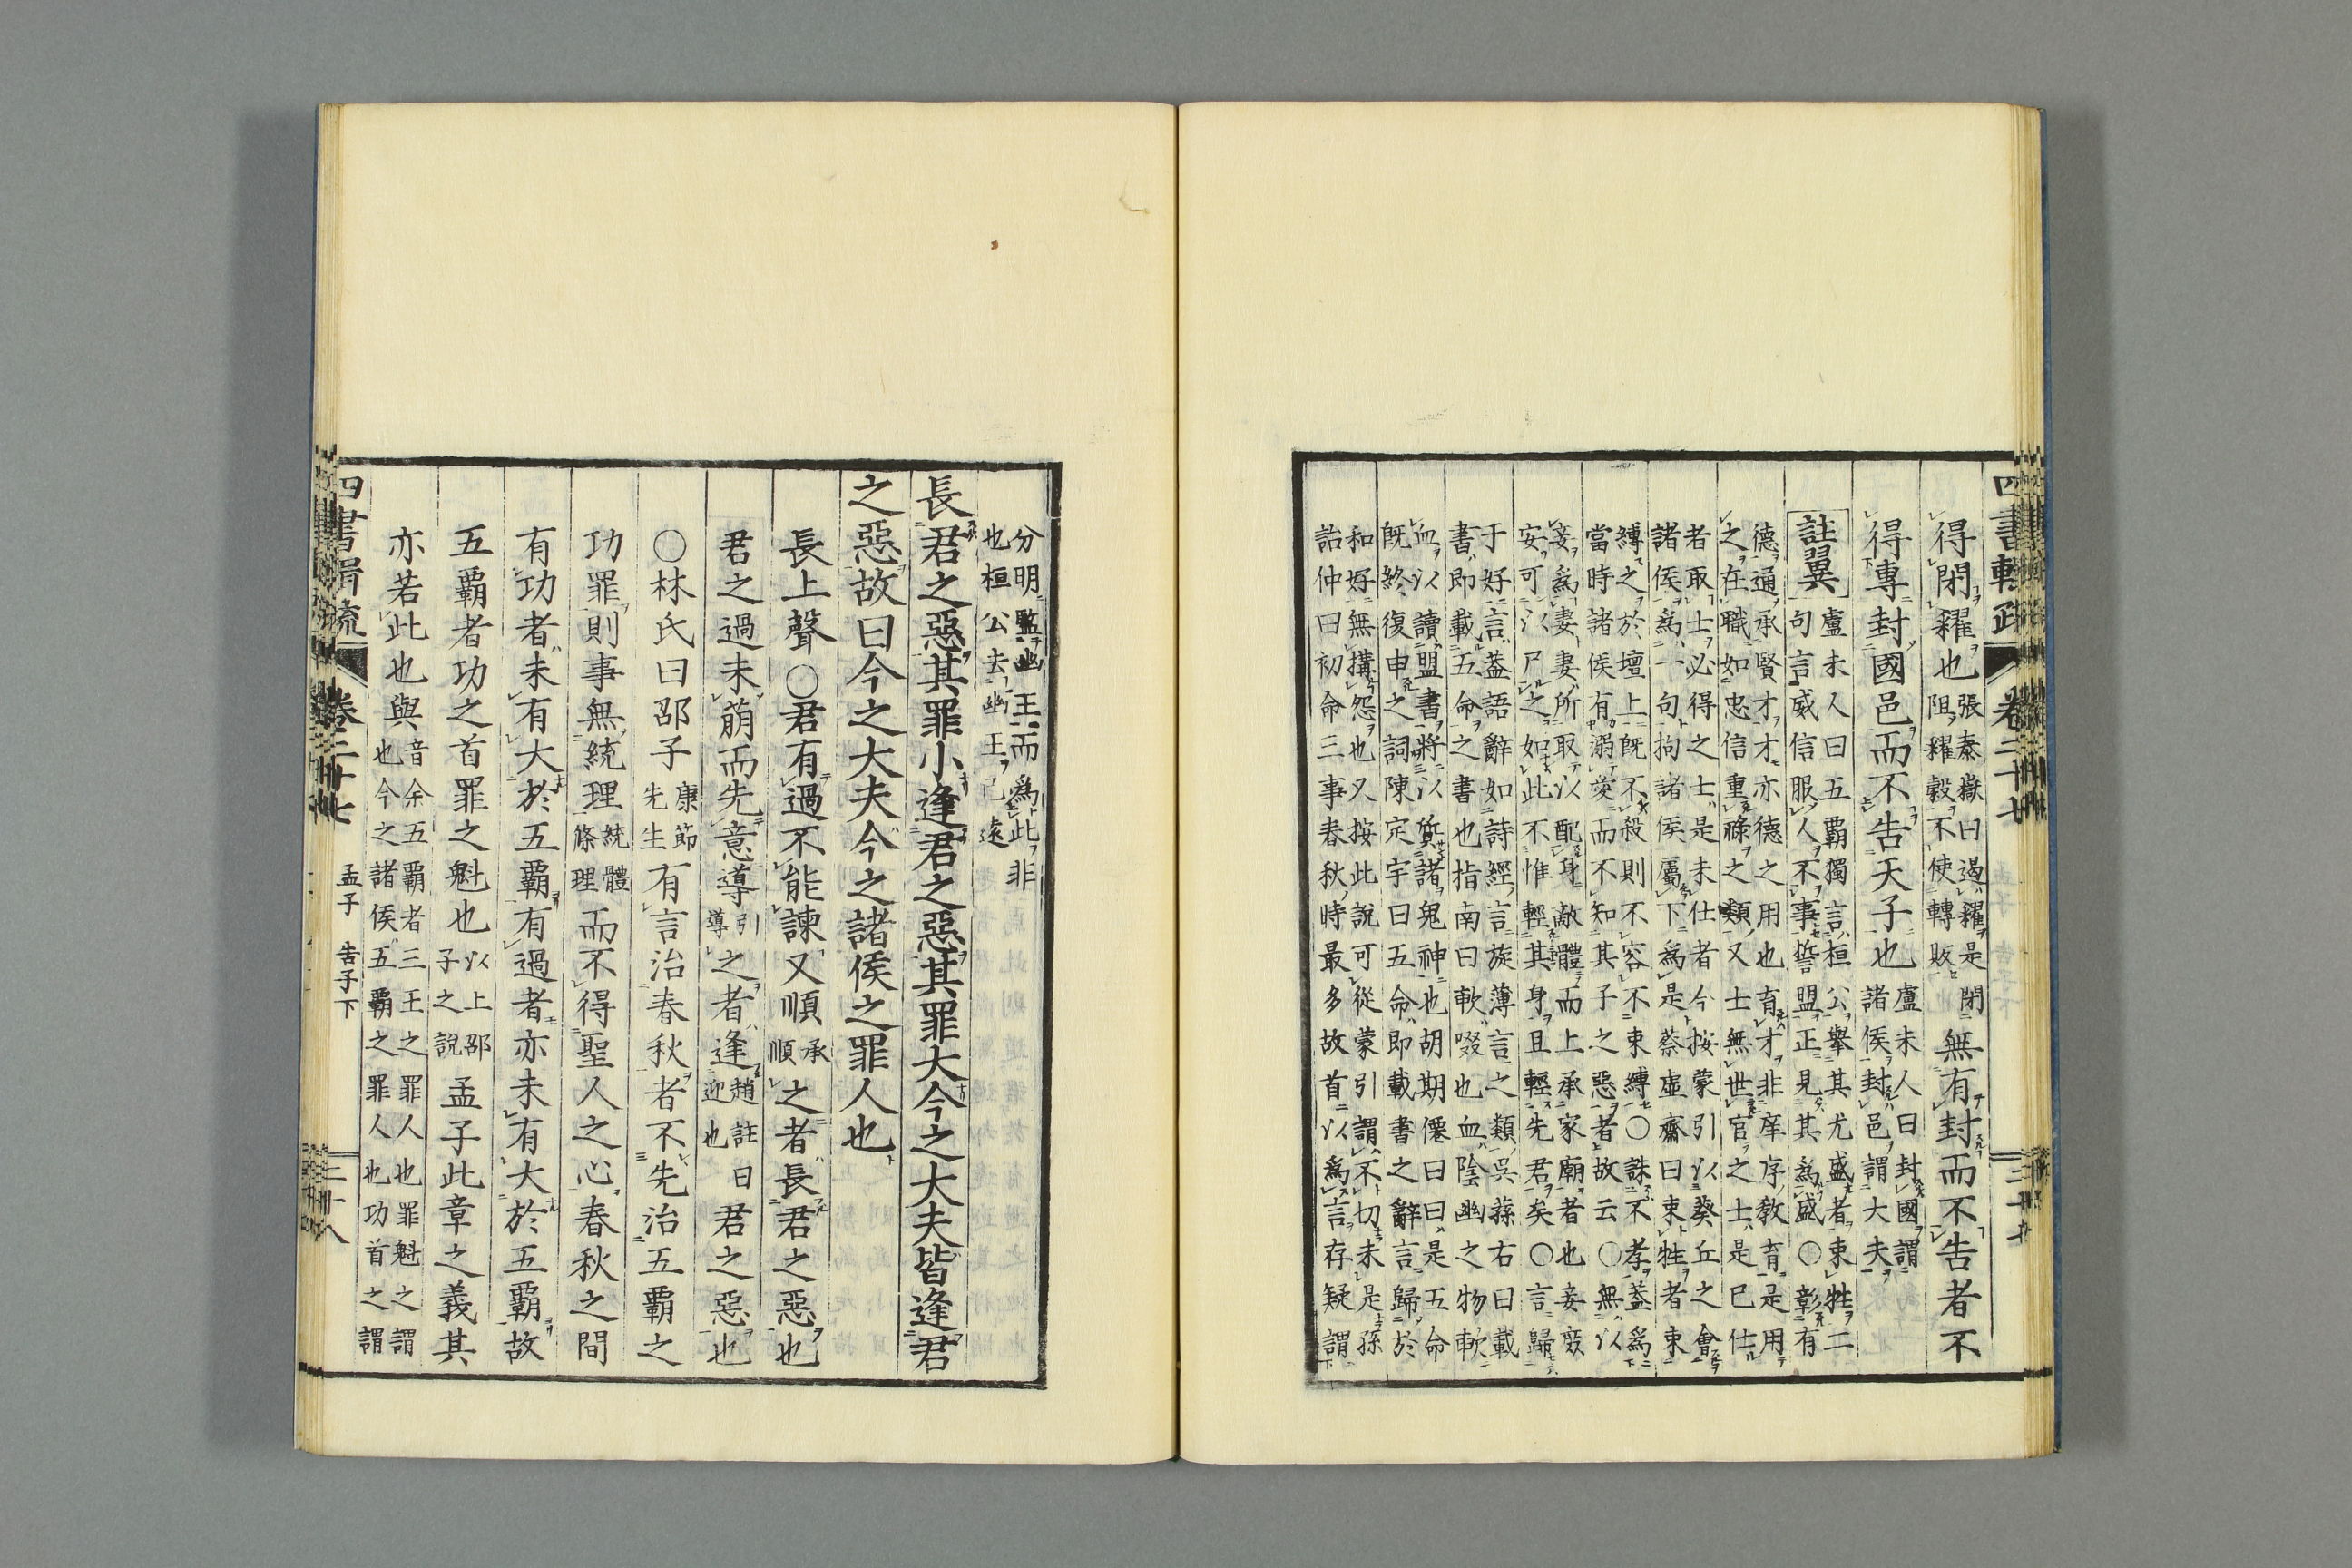 四書輯疏 卷二十七 二十七
得閉糴也張泰嶽曰遏糴是閉阻糴穀不使轉販無有封而不告者不
得專封國邑而不告天子也盧未人曰封國謂諸侯封邑謂大夫
註翼盧未人曰五霸獨言桓公舉其尤盛者束牲二
句言威信服人不事誓盟正見其為盛○彰有
德通承賢才才亦德之用也育才非庠序敎育是用
之在職如忠信重祿之類又士無世官之士是已仕
者取士必得之士是未仕者今按蒙引以葵丘之會
諸侯爲一句拘諸侯屬下爲是蔡虛齋曰束牲者束
縛之於壇上既不殺則不容不束縛○誅不孝蓋爲
當時諸侯有溺愛而不知其子之惡者故云○無以
妾爲妻妻所取以配身敵體而上承家廟者也妾廢
安可以尸之如此不惟輕其身且輕先君矣○言歸
于好言蓋語辭如詩經言旋薄言之類吳蓀右曰載
書即載五命之書也指南曰歃啜也血陰幽之物歃
血以讀盟書將以質諸鬼神也胡期僊曰曰是五命
既終復申之詞陳定宇曰五命即載書之辭言歸於
和好無搆怨也又按此說可從蒙引謂不切未是孫
詒仲曰初命三事春秋時最多故首以爲言存疑謂
分明監幽王而爲此非
也桓公去幽王已遠
長君之惡其罪小逢君之惡其罪大今之大夫皆逢君
之惡故曰今之大夫今之諸侯之罪人也
長上聲○君有過不能諫又順承順之者長君之惡也
君之過未萠而先意導引導之者逢趙註曰迎也君之惡也
○林氏曰邵子康節先生有言治春秋者不先治五霸之
功罪則事無統理統體條理而不得聖人之心春秋之間
有功者未有大於五霸有過者亦未有大於五霸故
五霸者功之首罪之魁也以上邵子之說孟子此章之義其
亦若此也與音余五霸者三王之罪人也罪魁之謂也今之諸侯五霸之罪人也功首之謂
四書輯疏 卷二十七 孟子 告子下 二十八